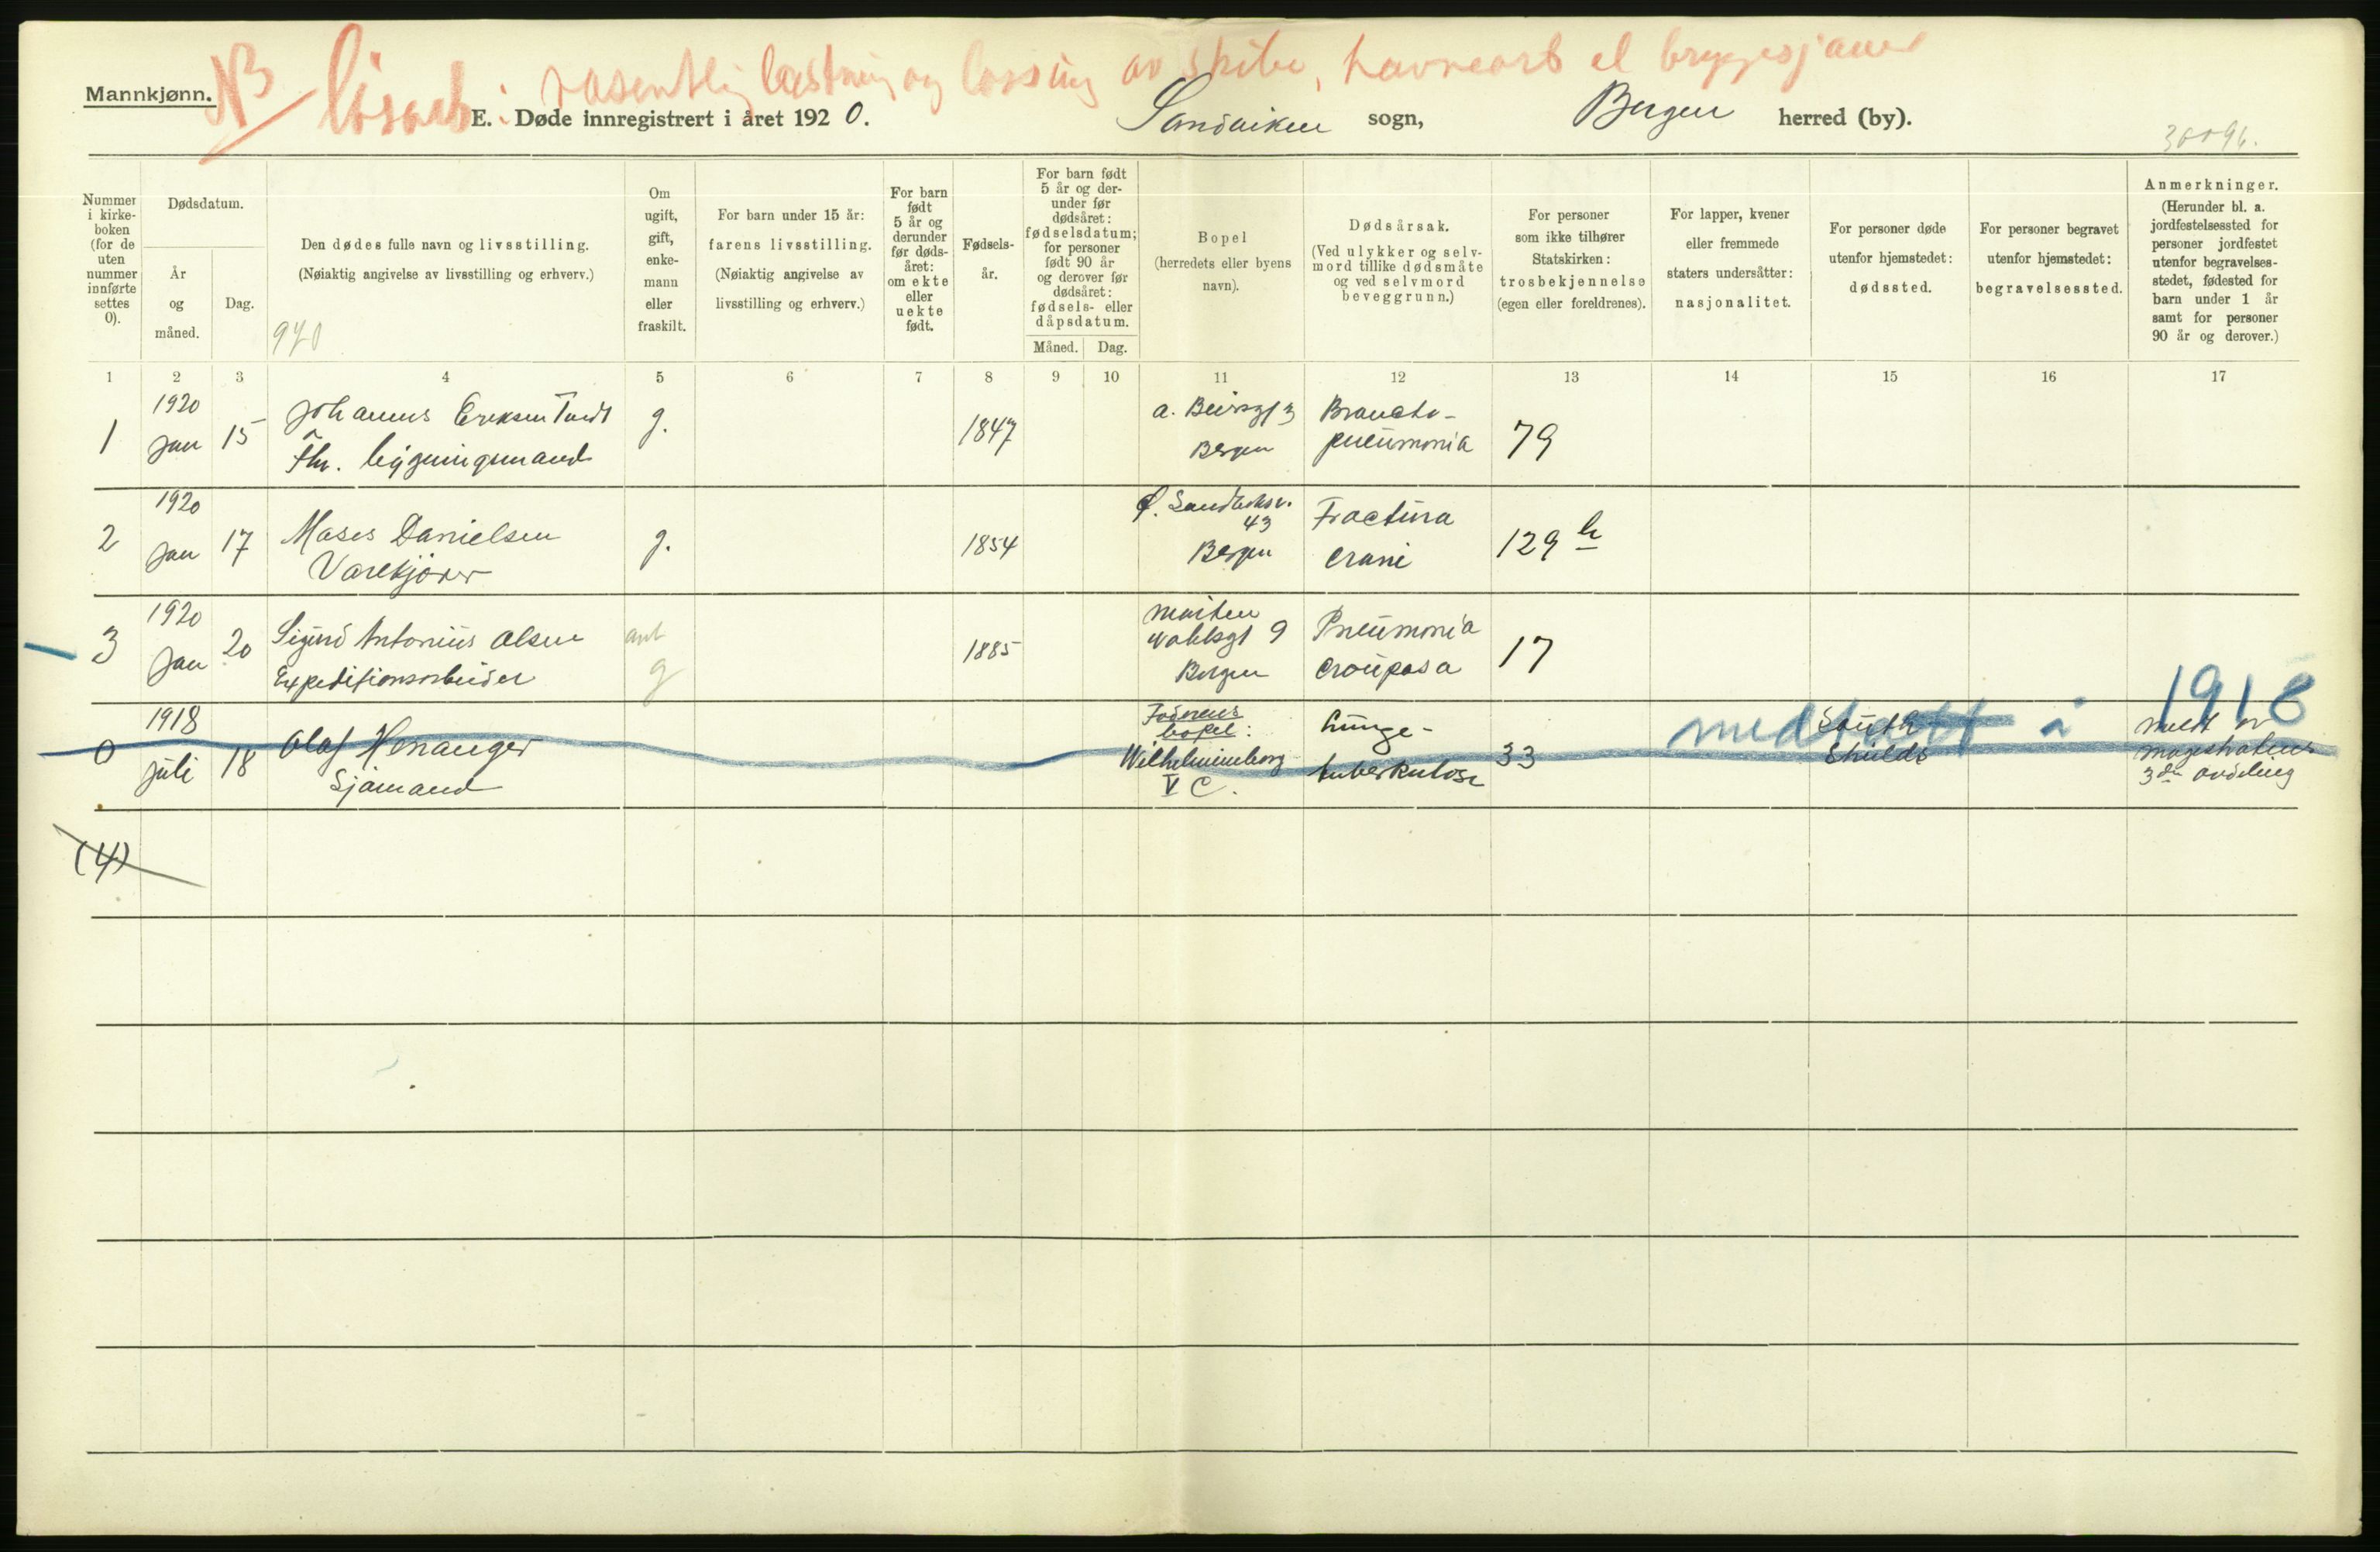 NB løsarb: væsentlig lastning og lossing av skibe, havnearb el bryggesjauer
Mannkjønn.
E. Døde innregistrert i året 1920. Sandviken sogn, Bergen herred (by).
Nummer i kirke-boken (for de uten nummer innførte settes 0).
Dødsdatum.
År og måned.
Dag.
Den dødes fulle navn og livsstilling.
(Nøiaktig angivelse av livsstilling og erhverv.)
970
Om ugift, gift, enke-mann eller fraskilt.
For barn under 15 år: farens livsstilling.
(Nøiaktig angivelse av livsstilling og erhverv.)
For barn født 5 år og derunder før døds-året: om ekte eller uekte født.
Fødsels-år.
For barn født 5 år og der-under før dødsåret: fødselsdatum; for personer født 90 år og derover før dødsåret: fødsels- eller dåpsdatum.
Måned. Dag.
Bopel
(herredets eller byens navn).
Dødsårsak.
(Ved ulykker og selv-mord tillike dødsmåte og ved selvmord beveggrunn.)
For personer som ikke tilhører Statskirken: trosbekjennelse (egen eller foreldrenes).
For lapper, kvener eller fremmede staters undersåtter: nasjonalitet.
For personer døde utenfor hjemstedet: dødssted.
For personer begravet utenfor hjemstedet: begravelsessted.
Anmerkninger.
(Herunder bl. a. jordfestelsessted for personer jordfestet utenfor begravelses-stedet, fødested for barn under 1 år samt for personer 90 år og derover.)
1 2 3 4 5 6 7 8 9 10 11 12 13 14 15 16 17
1 1920 Jan 15 Johannes Eriksen Tvedt
Fhv. bygningsmand g. 1847 Bergen Broncho-
pneumonia 79
2 1920 Jan 17 Moses Danielsen
g. 1854 Ø. Sandviksv. 43
Bergen Fractura
crani 129 b
3 1920 Jan 20 Sigurd Antonius Olsen
Expeditionsarbeider ant g 1885 Marten
Wahlsgt 9
Bergen Pneumonia
crouposa 17
0 1918 Juli 18 Olaf Hosanger
Sjømand Fadrens
bopel:
Wilhelmineborg
V C. Lunge-
tuberkulose 33 medtatt i 1918
South
Shields
meldt av
magistratens
3die avdeling
(4)